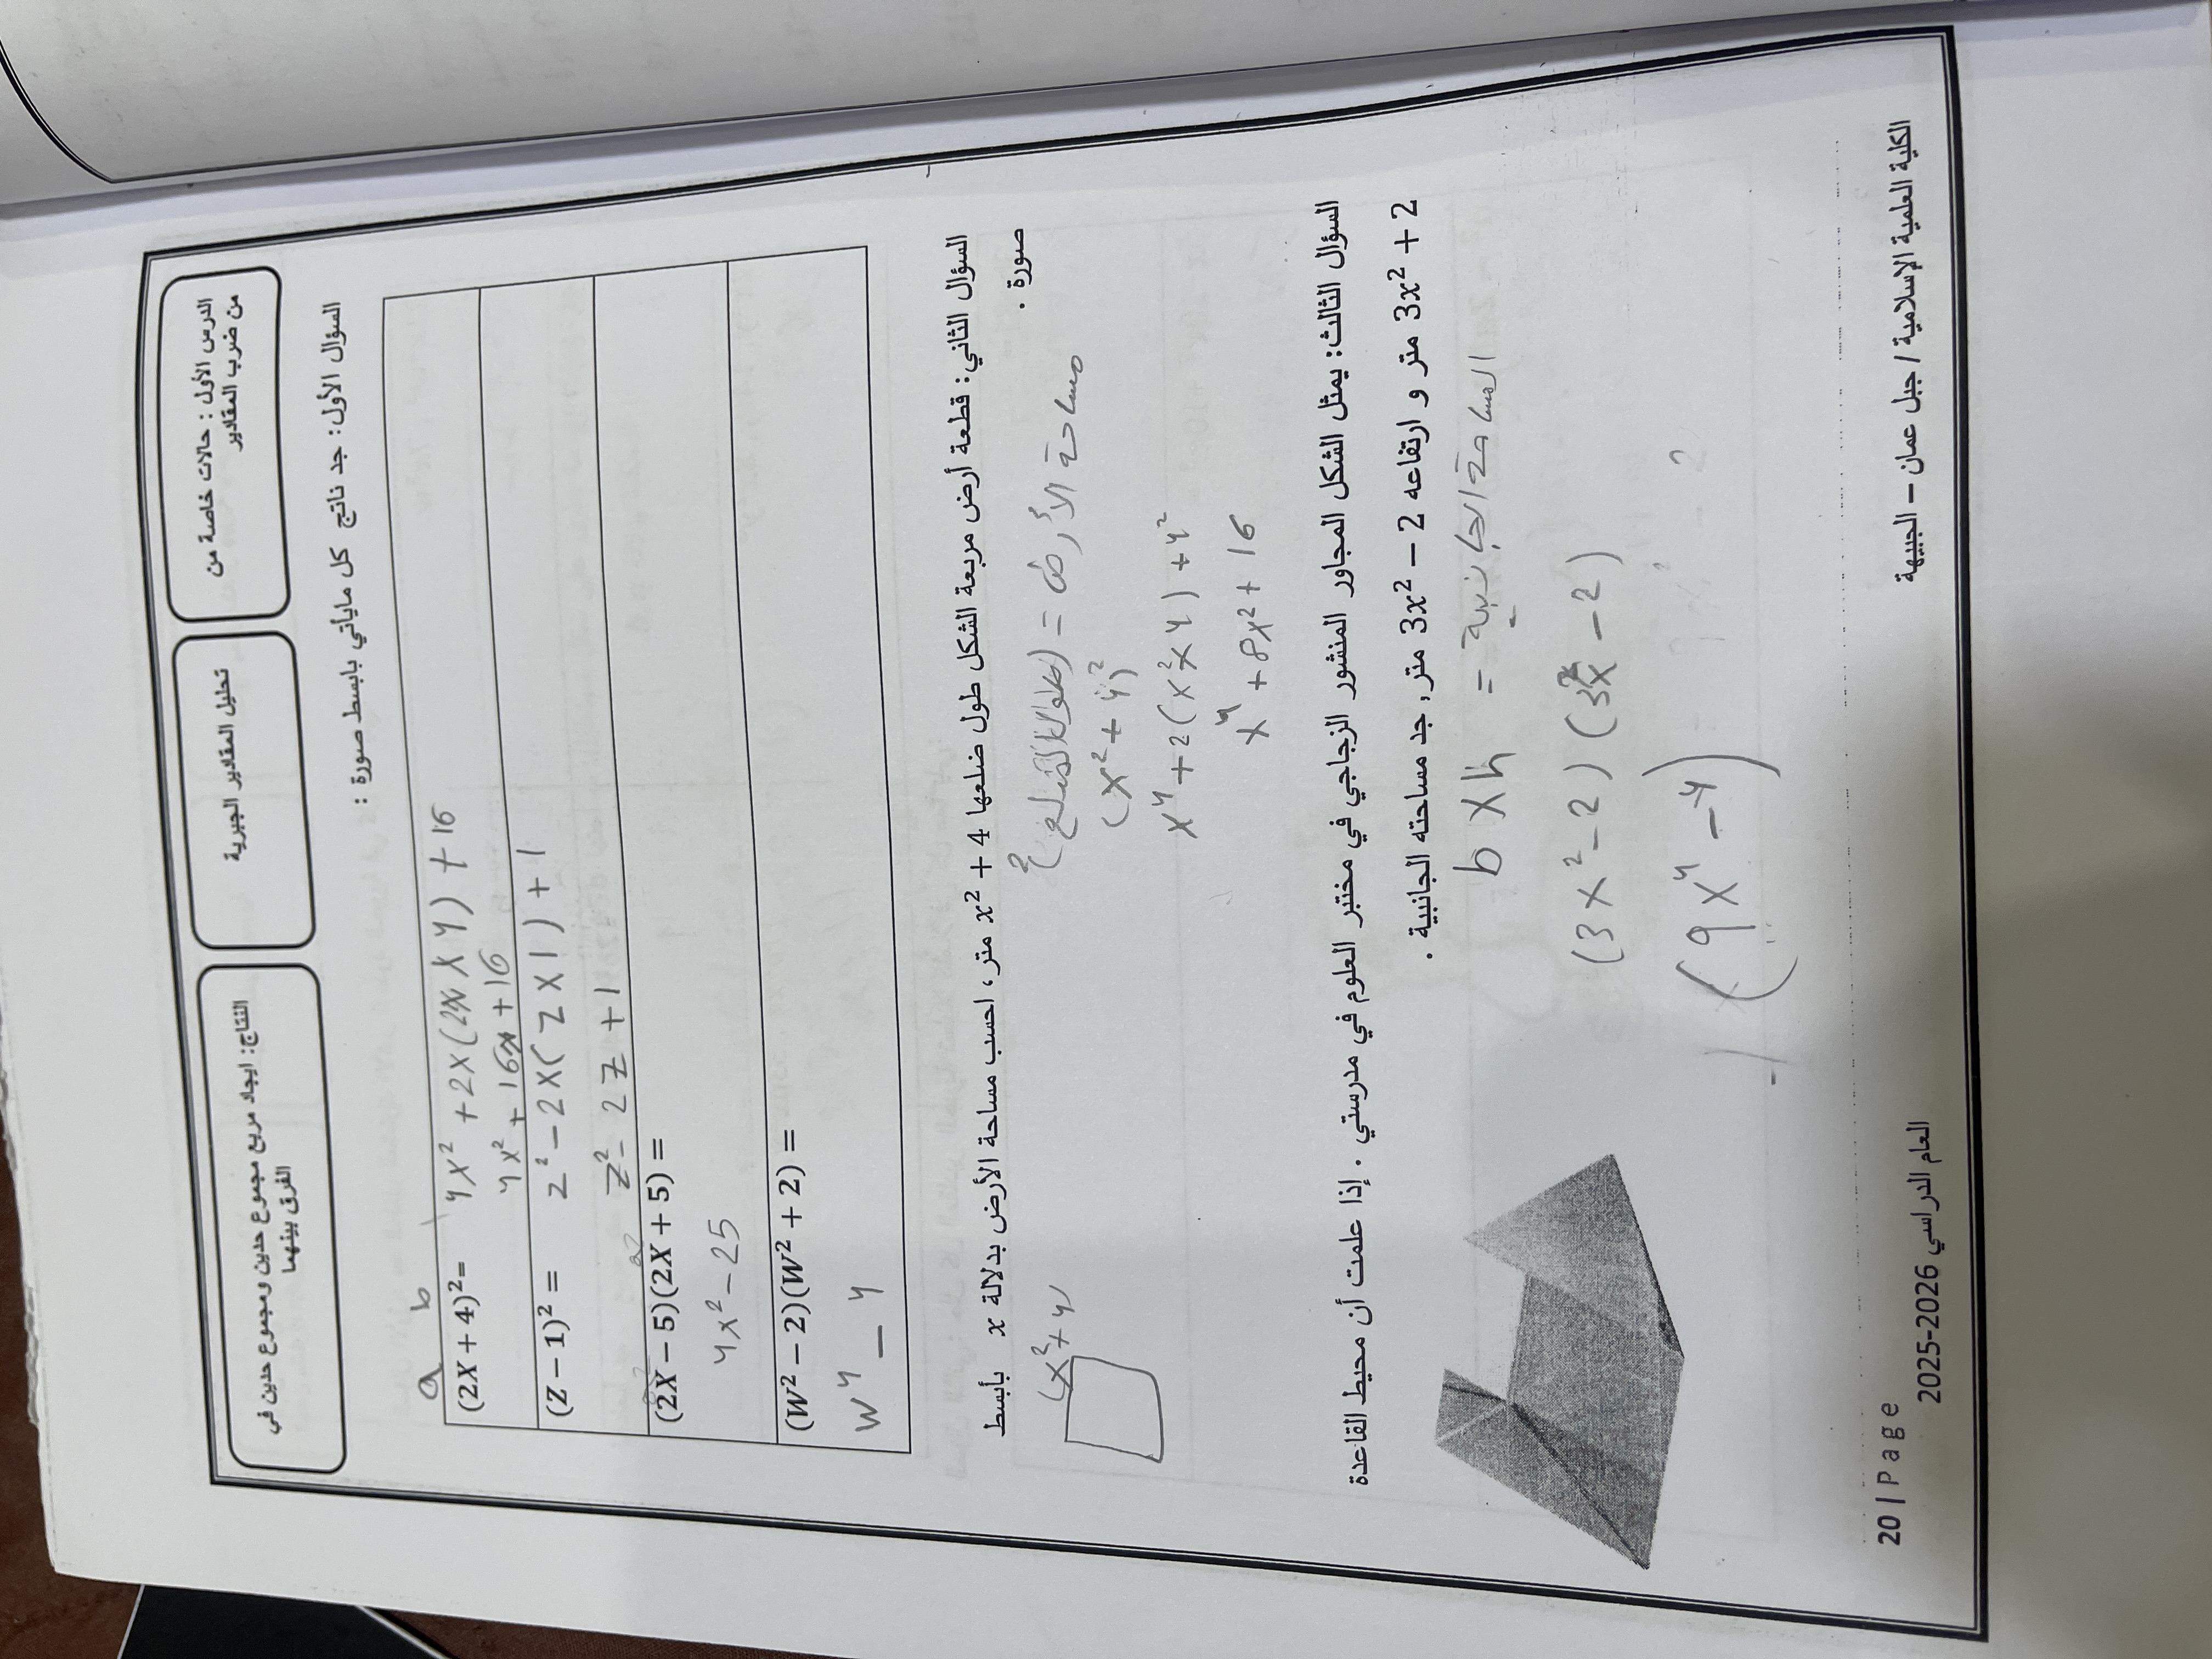 الدرس الأول : حالات خاصة من من ضرب المقادير
تحليل المقادير الجبرية
النتاج: ايجاد مربع مجموع حدين ومجموع حدين في الفرق بينهما
السؤال الأول: جد ناتج كل مايأتي بابسط صورة :
a b
(2X + 4)²= 4x² + 2x(2x x 4) + 16
4x² + 16x + 16
(Z − 1)² = z² − 2x(z x 1) + 1
z² − 2z + 1
(2X − 5)(2X + 5) =
4x² − 25
(W² − 2)(W² + 2) =
w⁴ − 4
السؤال الثاني: قطعة أرض مربعة الشكل طول ضلعها x² + 4 متر، احسب مساحة الأرض بدلالة x بأبسط
صورة .
مساحة الأرض = (طول الضلع)²
(x²+4)
(x² + 4)²
x⁴ + 2(x² x 4) + 4²
x⁴ + 8x² + 16
السؤال الثالث: يمثل الشكل المجاور المنشور الزجاجي في مختبر العلوم في مدرستي . إذا علمت أن محيط القاعدة
3x² + 2 متر و ارتفاعه 3x² − 2 متر, جد مساحته الجانبية .
المساحة الجانبية = b x h
(3x² − 2) (3x² − 2)
(9x⁴ − 4)
20 | Page
العام الدراسي 2025-2026
الكلية العلمية الإسلامية / جبل عمان – الجبيهة